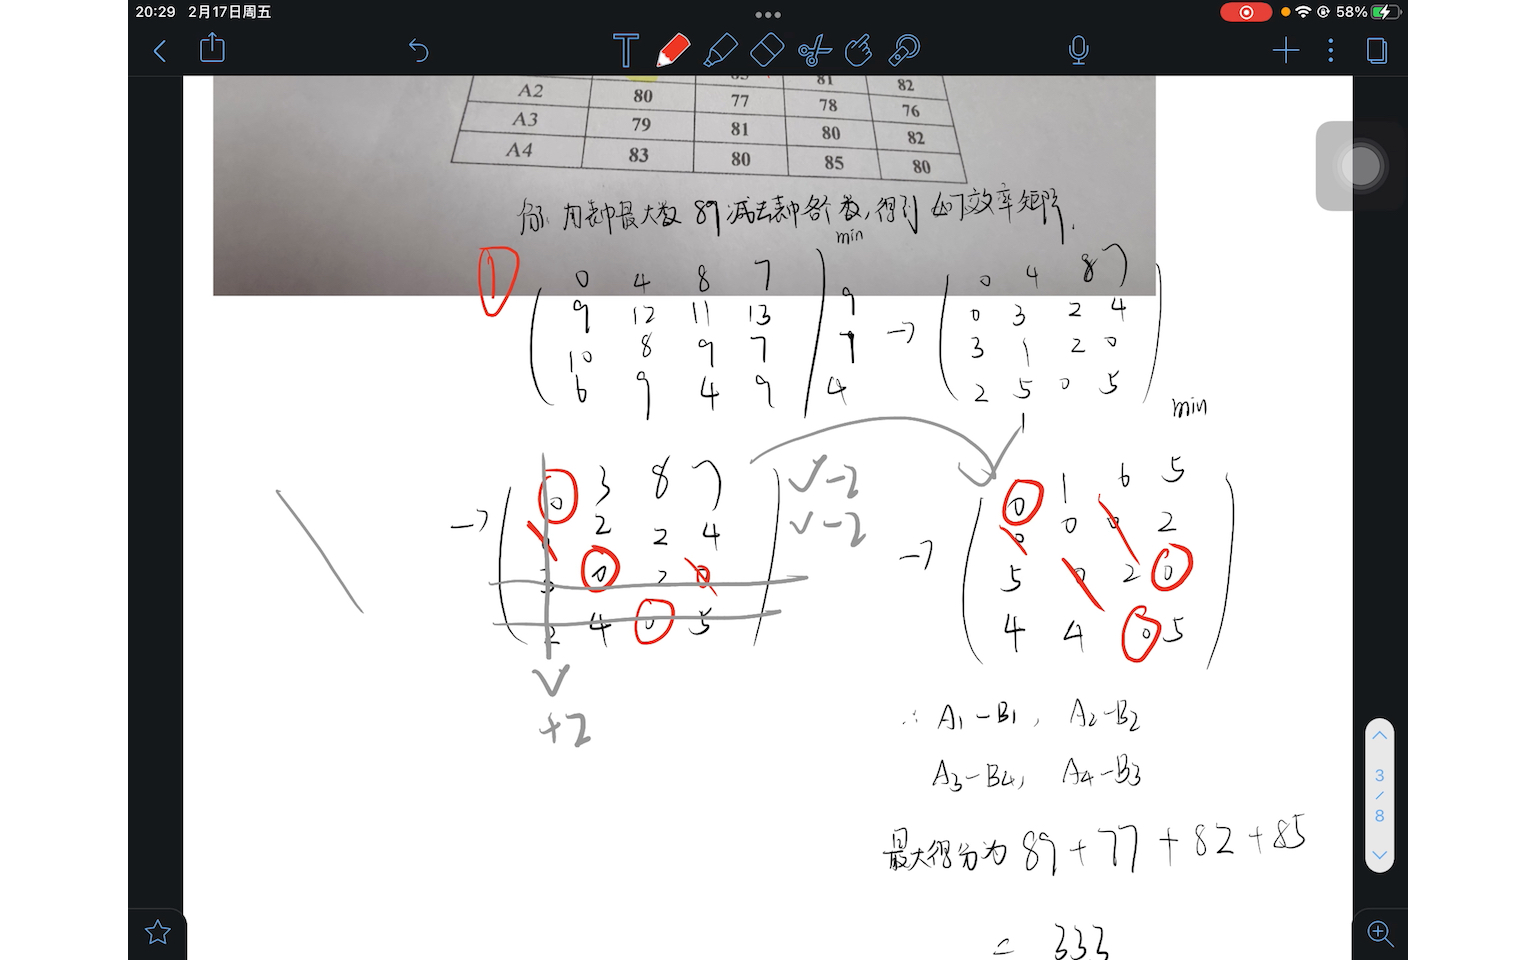 20:29 2月17日周五
58%
85 81 82
A2 80 77 78 76
A3 79 81 80 82
A4 83 80 85 80
解: 用表中最大数 89 减去表中各个数, 得到如下效率矩阵.
min
①
0 4 8 7
9 12 11 13 9
10 8 9 7 7
6 9 4 9 4
→
0 4 8 7
0 3 2 4
3 1 2 0
2 5 0 5
1
min
→
0 3 8 7 √-2
0 2 2 4 √-2
3 0 2 0
2 4 0 5
√
+2
→
0 1 6 5
0 0 0 2
5 0 2 0
4 4 0 5
∴ A1-B1, A2-B2
A3-B4, A4-B3
最大得分为 89+77+82+85
= 333
3
/
8